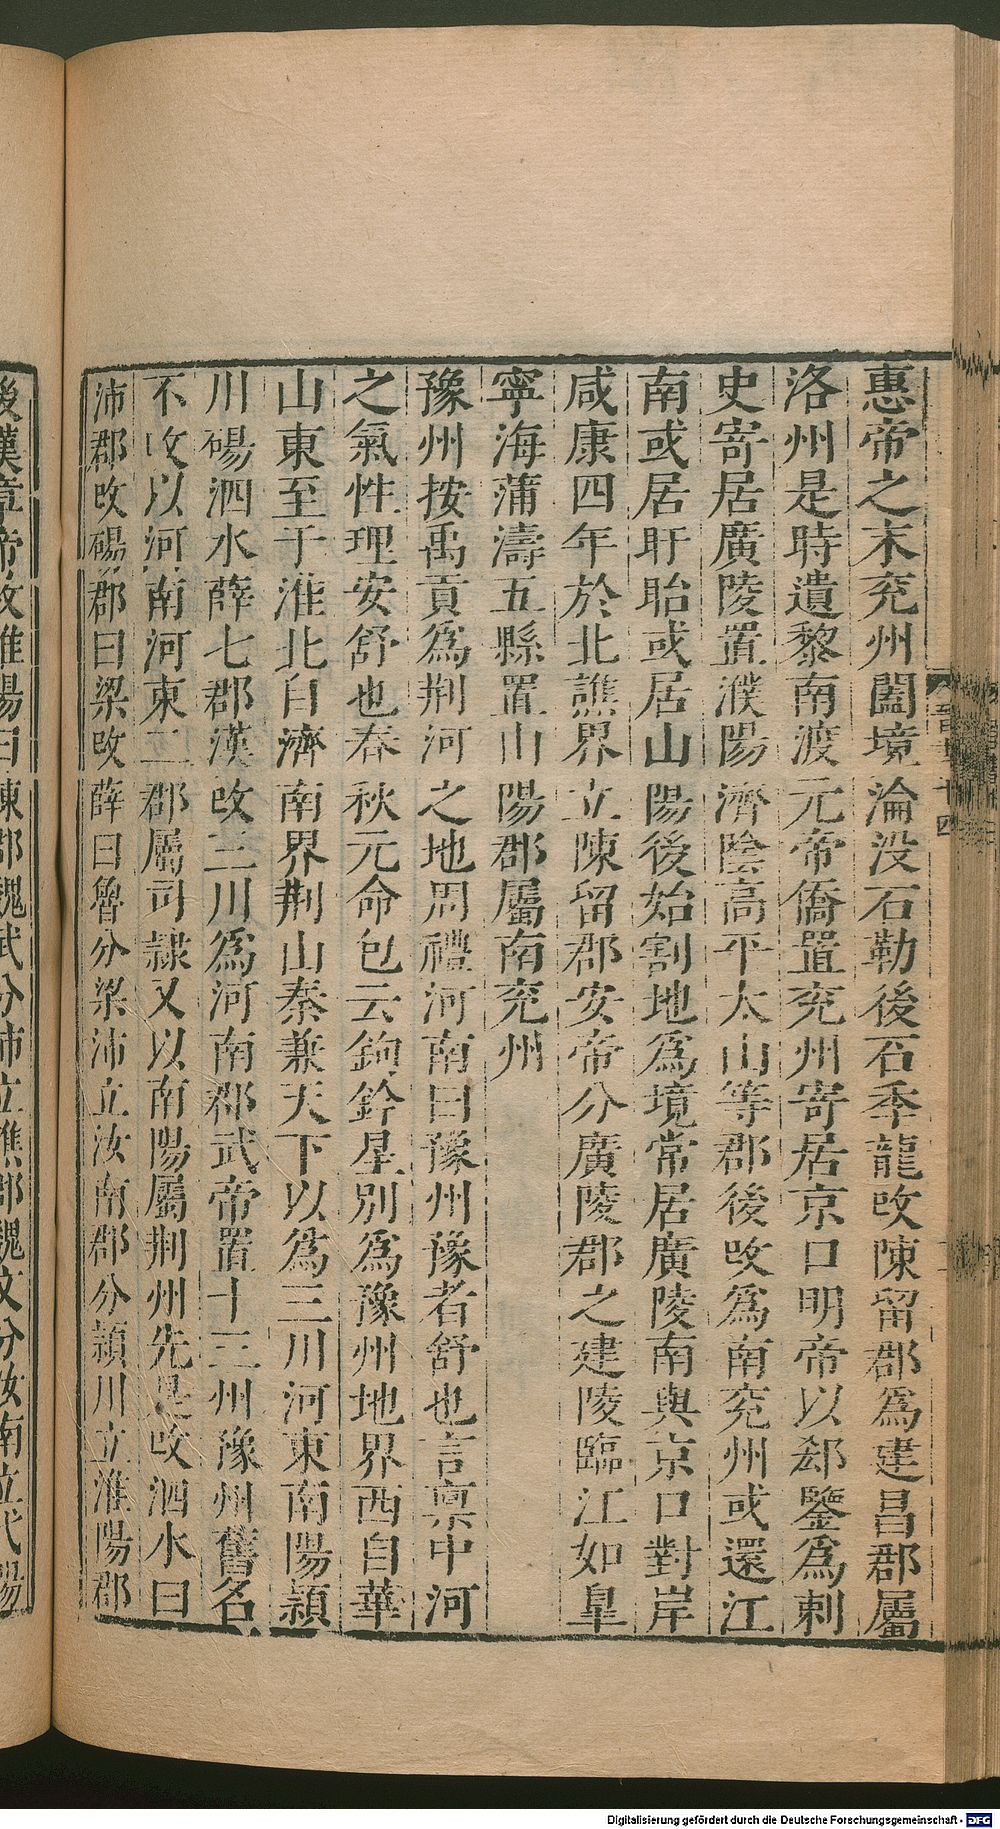 惠帝之末兖州闔境淪没石勒後石季龍改陳留郡爲建昌郡屬
洛州是時遺黎南渡元帝僑置兖州寄居京口明帝以郄鑒爲刺
史寄居廣陵置濮陽濟陰高平太山等郡後改爲南兖州或還江
南或居盱眙或居山陽後始割地爲境常居廣陵南與京口對岸
咸康四年於北譙界立陳留郡安帝分廣陵郡之建陵臨江如臯
寧海蒲濤五縣置山陽郡屬南兖州
豫州按禹貢爲荆河之地周禮河南曰豫州豫者舒也言稟中河
之氣性理安舒也春秋元命包云鉤鈐星別爲豫州地界西自華
山東至于淮北自濟南界荆山秦兼天下以爲三川河東南陽潁
川碭泗水薛七郡漢改三川爲河南郡武帝置十三州豫州舊名
不改以河南河東二郡屬司隷又以南陽屬荆州先是改泗水曰
沛郡改碭郡曰梁改薛曰魯分梁沛立汝南郡分潁川立淮陽郡
後漢章帝改淮陽曰陳郡魏武分沛立譙郡魏文分汝南立弋陽
Digitalisierung gefördert durch die Deutsche Forschungsgemeinschaft - DFG